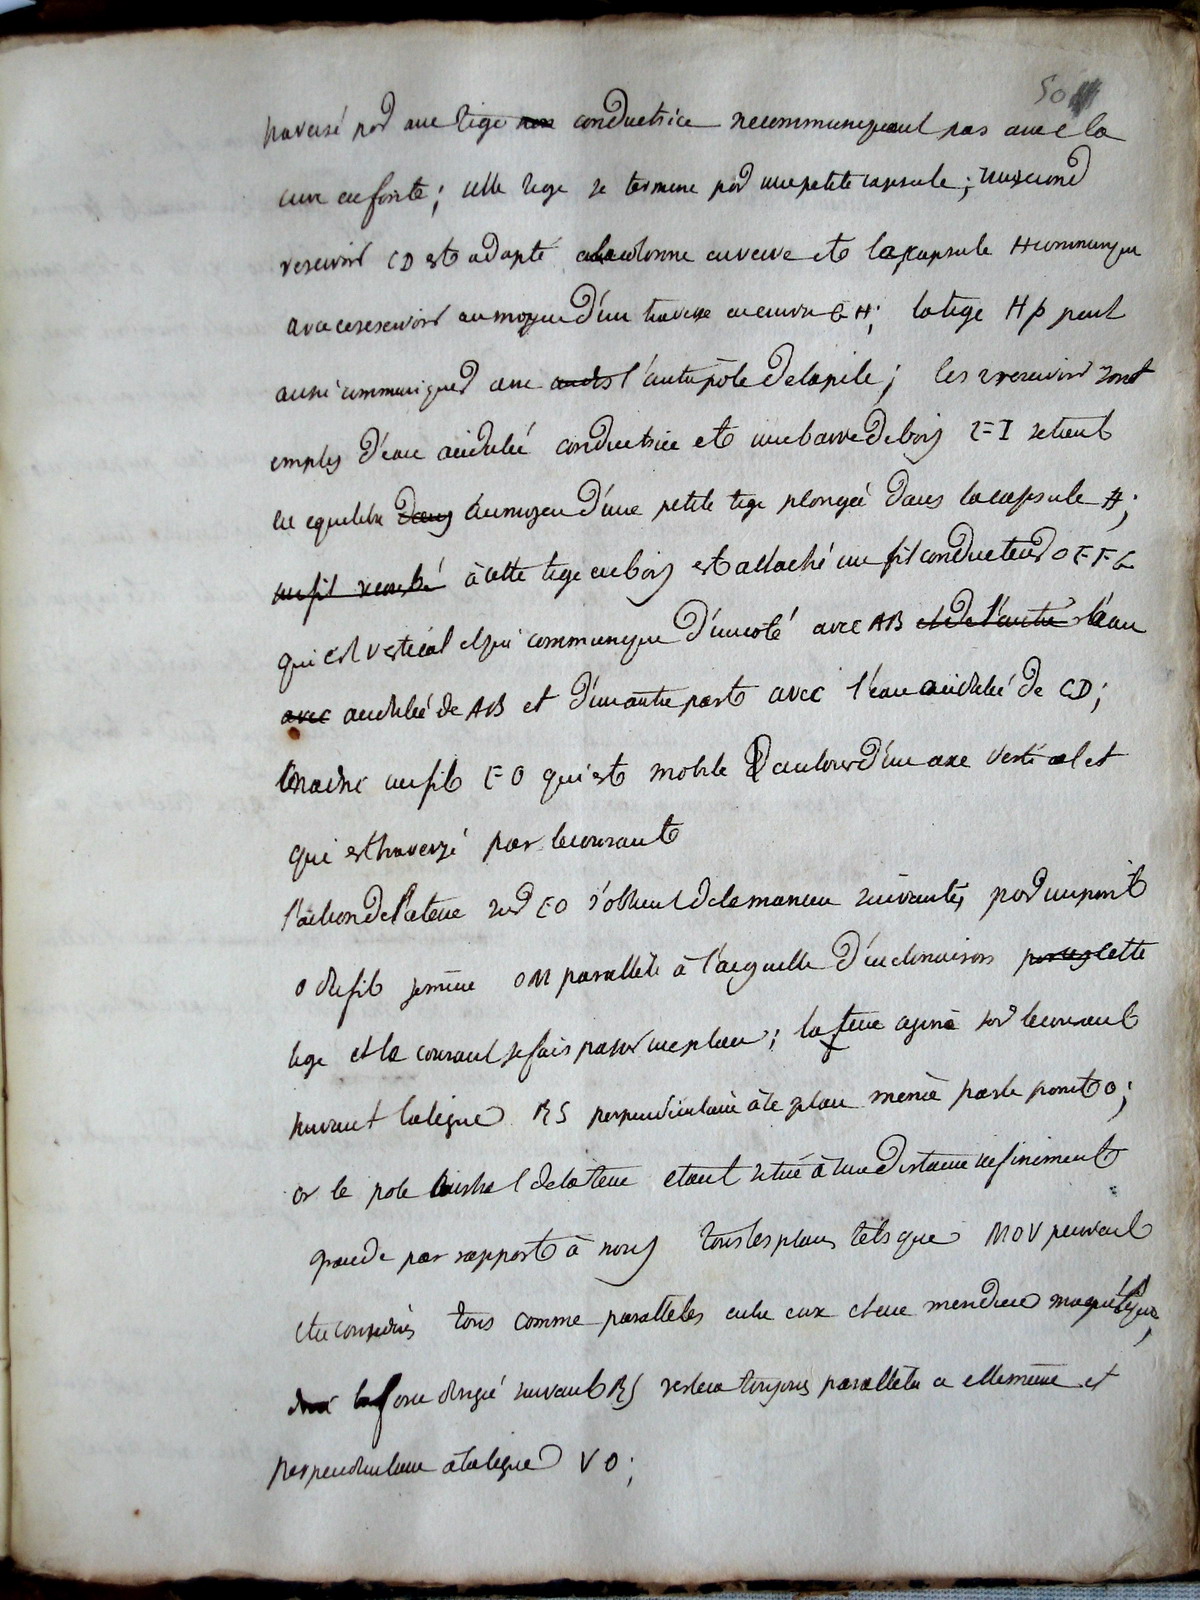 50
traversé par une tige non conductrice necommuniquant pas avec la
cuve en fonte; cette tige se termine par une petite capsule; un second
reservoir CD est adapté a la colonne en verre et la capsule H communique
avec ce reservoir au moyen d'une traverse en cuivre G H; la tige H p peut
aussi communiquer avec l'autre pôle de la pile; les 2 reservoirs sont
emplis d'eau acidulée conductrice et une barre de bois EI se tient
en equilibre dans au moyen d'une petite tige plongée dans la capsule H;
un fil recourbé à cette tige en bois est attaché un fil conducteur O E F G
qui est vertical et qui communique d'un coté avec AB et de l'autre l'eau
avec acidulée de AB et d'une autre part avec l'eau acidulée de CD;
un fil E O qui est mobile autour d'un axe vertical et
qui est traversé par le courant
l'action de la terre sur E O s'obtient de la maniere suivante, par un point
o du fil je mene OM parallele à l'aiguille d'inclinaison cette
tige et le courant je fais passer un plan; la terre agira sur le courant
suivant la ligne RS perpendiculaire à ce plan menée par le point o;
or le pole de la terre etant situé à une distance infiniment
grande par rapport à nous tous les plans tels que MOV peuvent
etre considérés tous comme paralleles entre eux et au meridien magnétique,
donc la force dirigée suivant RS restera toujours parallele a elle même et
perpendiculaire à la ligne V O;